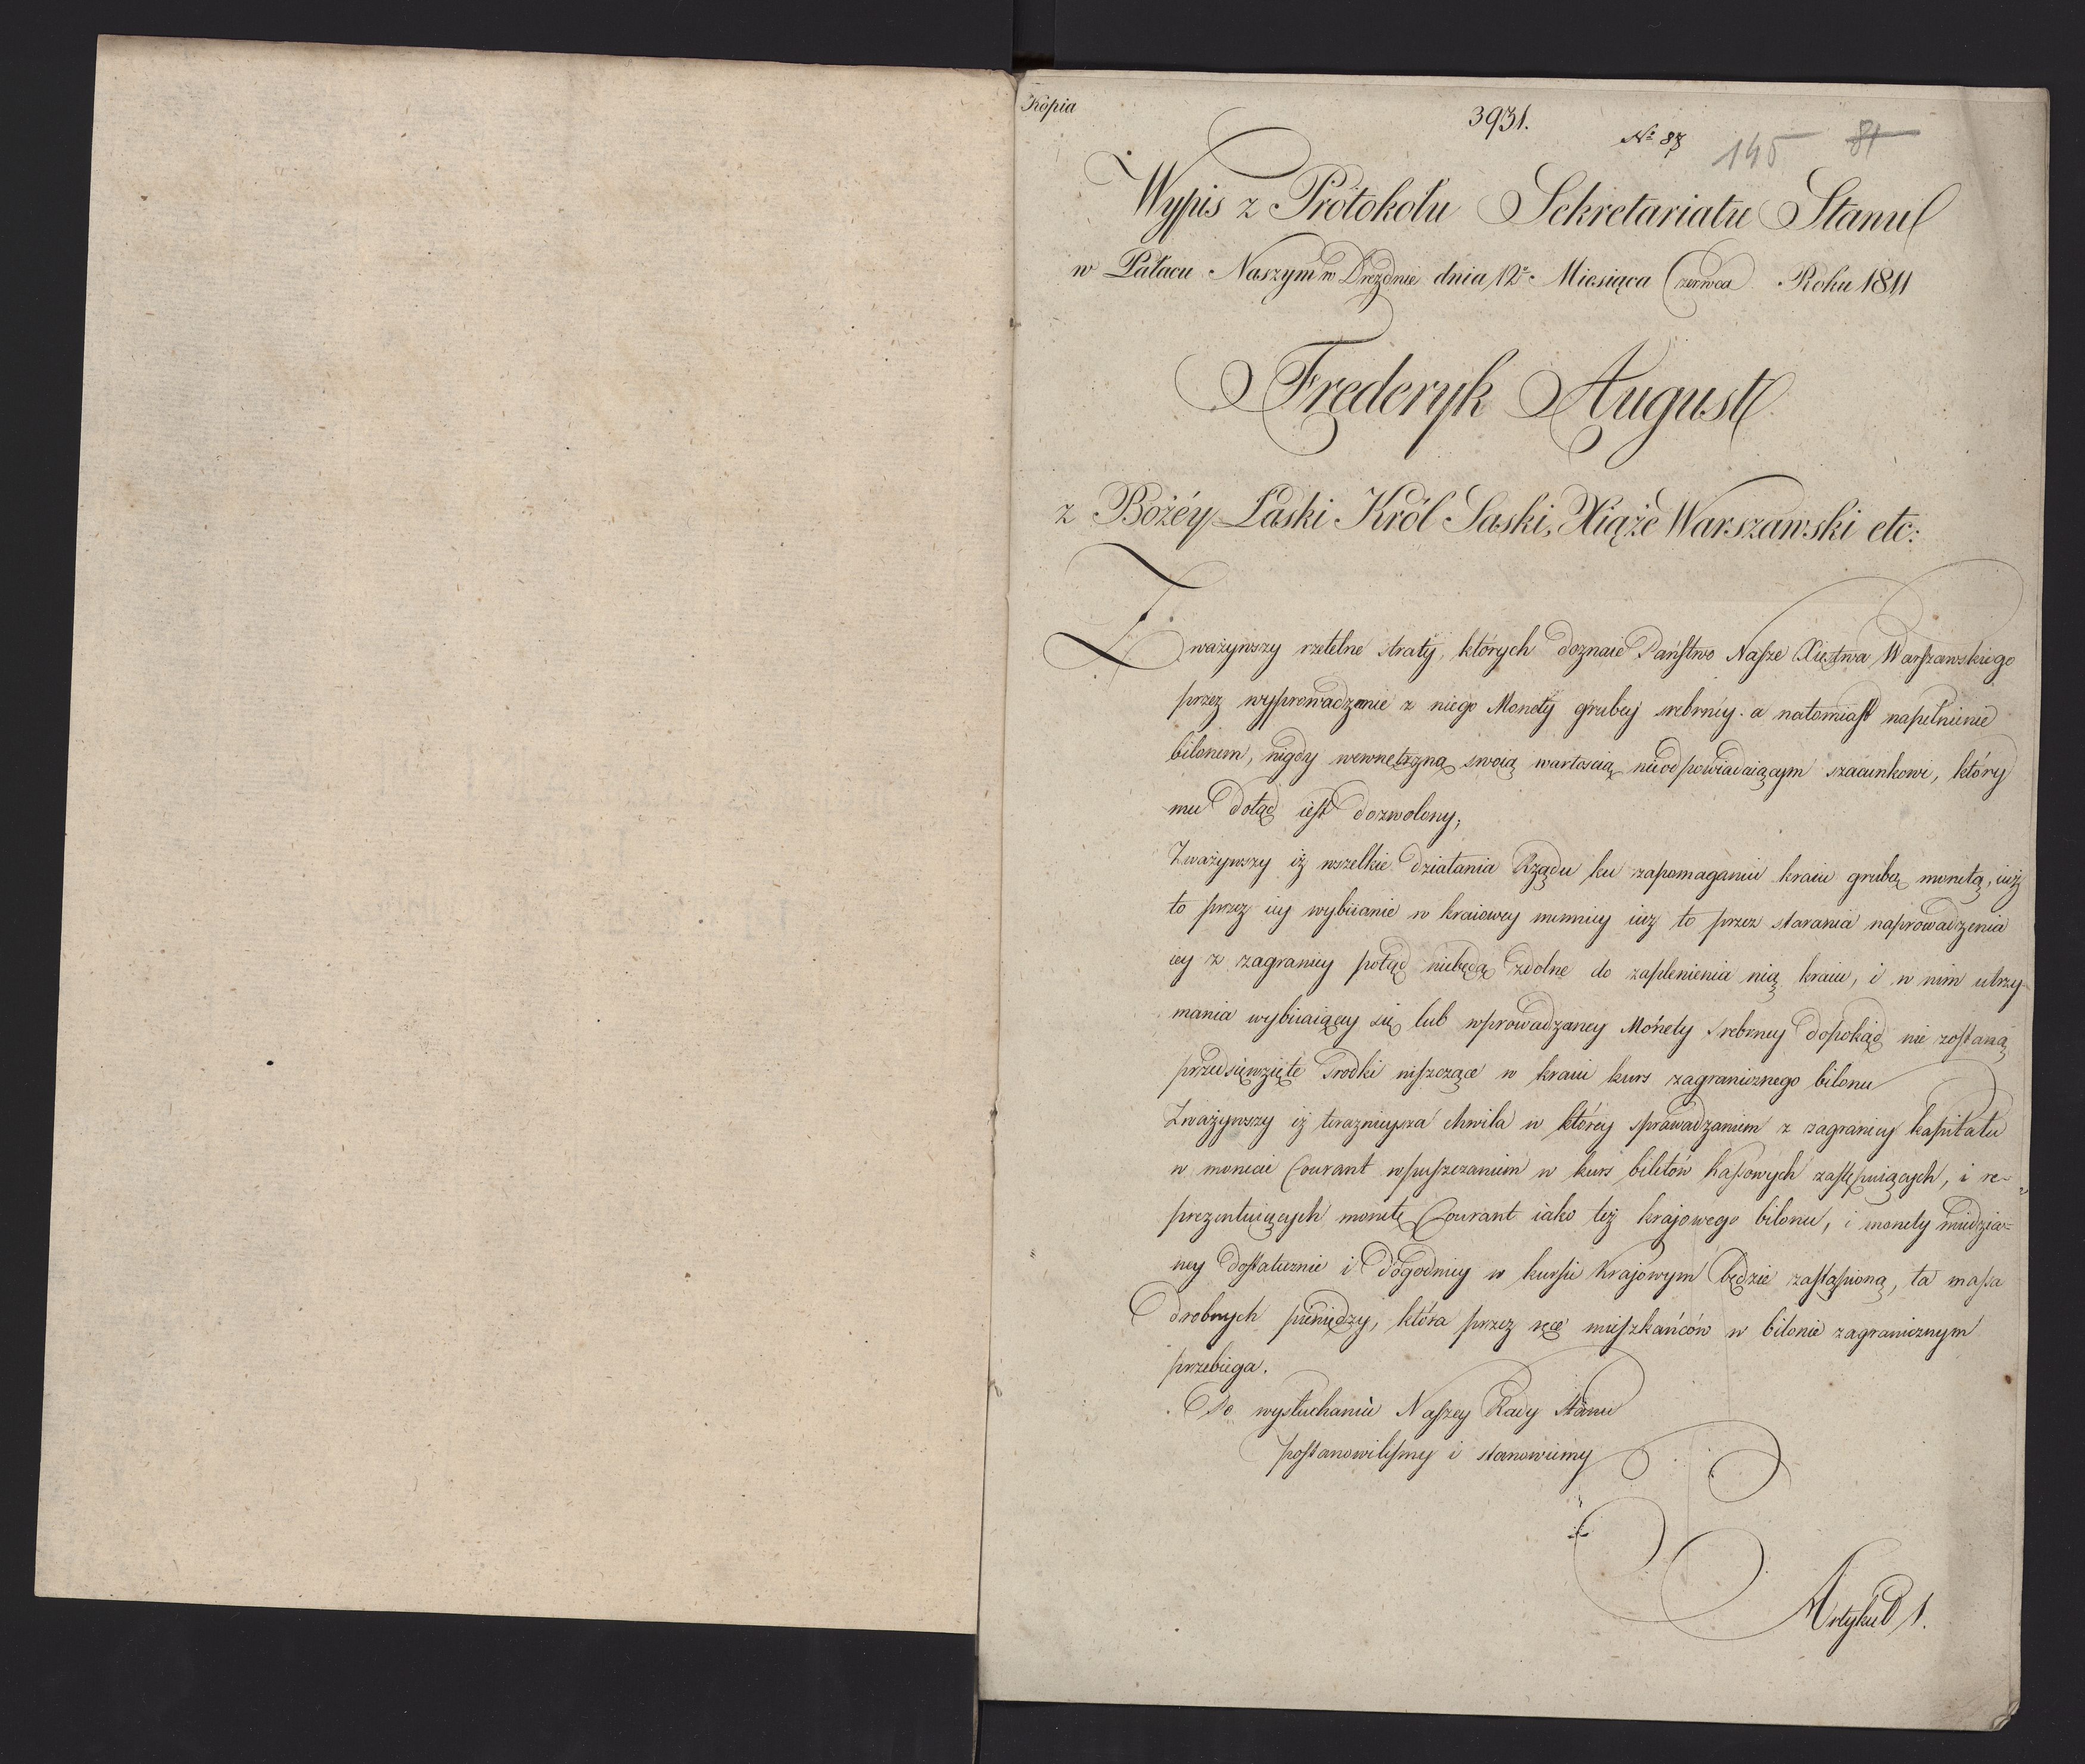 Kopia
3931.
№ 87
145 81
Wypis z Protokołu Sekretariatu Stanu
w Pałacu Naszym w Dreznie dnia 12º Miesiąca Czerwca Roku 1811
Frederyk August
z Bożéy Łaski Król Saski, Xiąże Warszawski etc:
Zważywszy rzetelne straty, których doznaie Państwo Nasze Xięstwa Warszawskiego
przez wyprowadzenie z niego Monety grubey srebrney. a natomiast napełnienie
bilonem, nigdy wewnętrzną swoią wartoscią nieodpowiadaiącym szacunkowi, który
mu dotąd iest dozwolony;
Zważywszy iż wszelkie działania Rządu ku zapomaganiu kraiu grubą monetą, iuż
to przez iey wybiianie w kraiowey mennicy iuz to przez starania naprowadzenia
iey z zagranicy potąd niebędą zdolne do zaplenienia nią kraiu, i w nim utrzy-
mania wybiiaiącey się lub wprowadzaney Monety srebrney dopokąd nie zostaną
przedsięwzięte srodki niszczące w kraiu kurs zagranicznego bilonu
Zważywszy iż teraznieysza chwila w którey sprawadzaniem z zagranicy kapitału
w monecie Courant wpuszczaniem w kurs biletów kassowych zastępuiących, i re-
prezentuiących monetę Courant iako też krajowego bilonu, i monety miedzia-
ney dostatecznie i dogodniey w kursie krajowym będzie zastąpioną, ta massa
drobnych pieniędzy, która przez ręce mieszkańców w bilonie zagranicznym
przebiega.
Po wysłuchaniu Naszey Rady Stanu
postanowiliśmy i stanowiemy
Artykuł 1.